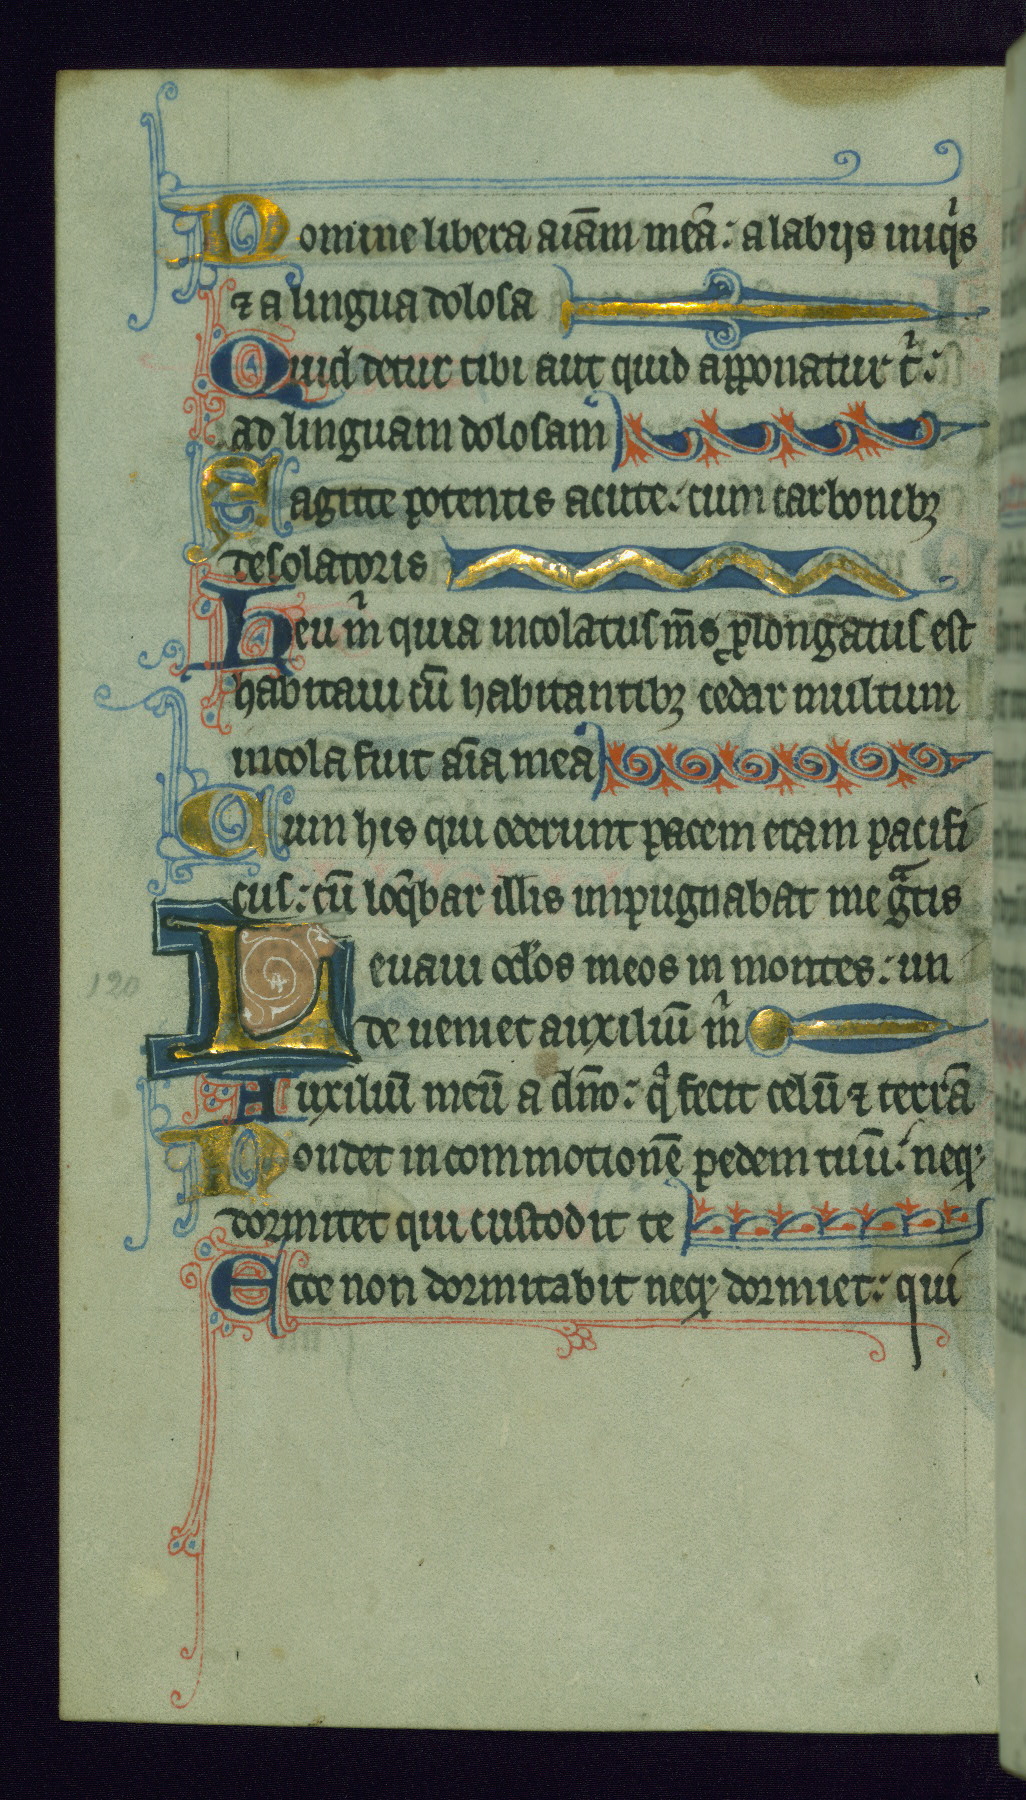 Domine libera aīam meā: a labijs iniq̍s
⁊ a lingua dolosa
Quid detur tibi aut quid apponatur t̍:
ad linguam dolosam
Sagitte potentis acute: cum carbonibꝫ
desolatoris
Heu m̍ quia incolatus m̄s ꝓlongatus est
habitaui cū habitantibꝫ cedar multum
incola fuit aīa mea
Cum his qui oderunt pacem eram pacifi
cus: cū loq̄bar illis inpugnabat me gͣtis
Leuaui oclōs meos in montes: un
de ueniet auxiliū m̍
120
Auxiliū meū a dn̄o: q̍ fecit celū ⁊ terrā
Non det in commotionē pedem tuū: neqꝫ
dormitet qui custodit te
Ecce non dormitabit neqꝫ dormiet: qui